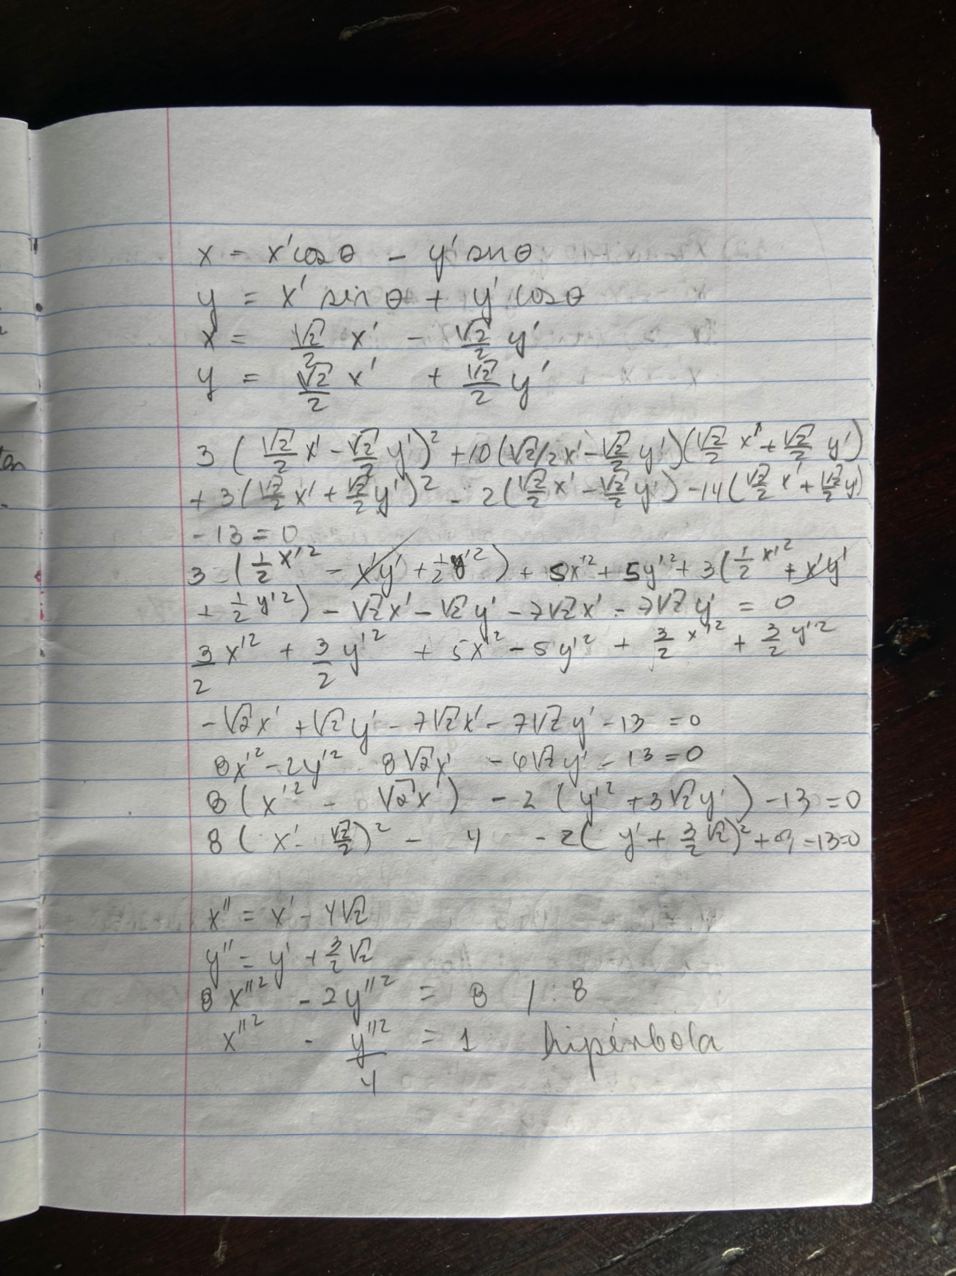 x = x' cos θ - y' sin θ
y = x' sin θ + y' cos θ
x = √2/2 x' - √2/2 y'
y = √2/2 x' + √2/2 y'
3 (√2/2 x' - √2/2 y')² + 10 (√2/2 x' - √2/2 y')(√2/2 x' + √2/2 y')
+ 3 (√2/2 x' + √2/2 y')² - 2 (√2/2 x' - √2/2 y') - 14 (√2/2 x' + √2/2 y')
- 13 = 0
3 (1/2 x'² - x'y' + 1/2 y'²) + 5x'² + 5y'² + 3 (1/2 x'² + x'y'
+ 1/2 y'²) - √2 x' - √2 y' - 7√2 x' - 7√2 y' = 0
3/2 x'² + 3/2 y'² + 5x'² - 5y'² + 3/2 x'² + 3/2 y'²
- √2 x' + √2 y' - 7√2 x' - 7√2 y' - 13 = 0
8x'² - 2y'² 8√2 x' - 6√2 y' - 13 = 0
8 (x'² - √2 x') - 2 (y'² + 3√2 y') - 13 = 0
8 (x' - √2/2)² - 4 - 2 (y' + 3/2 √2)² + 9 - 13 = 0
x'' = x' - 4√2
y'' = y' + 3/2 √2
8x''² - 2y''² = 8 / : 8
x''² - y''²/4 = 1 hipérbola